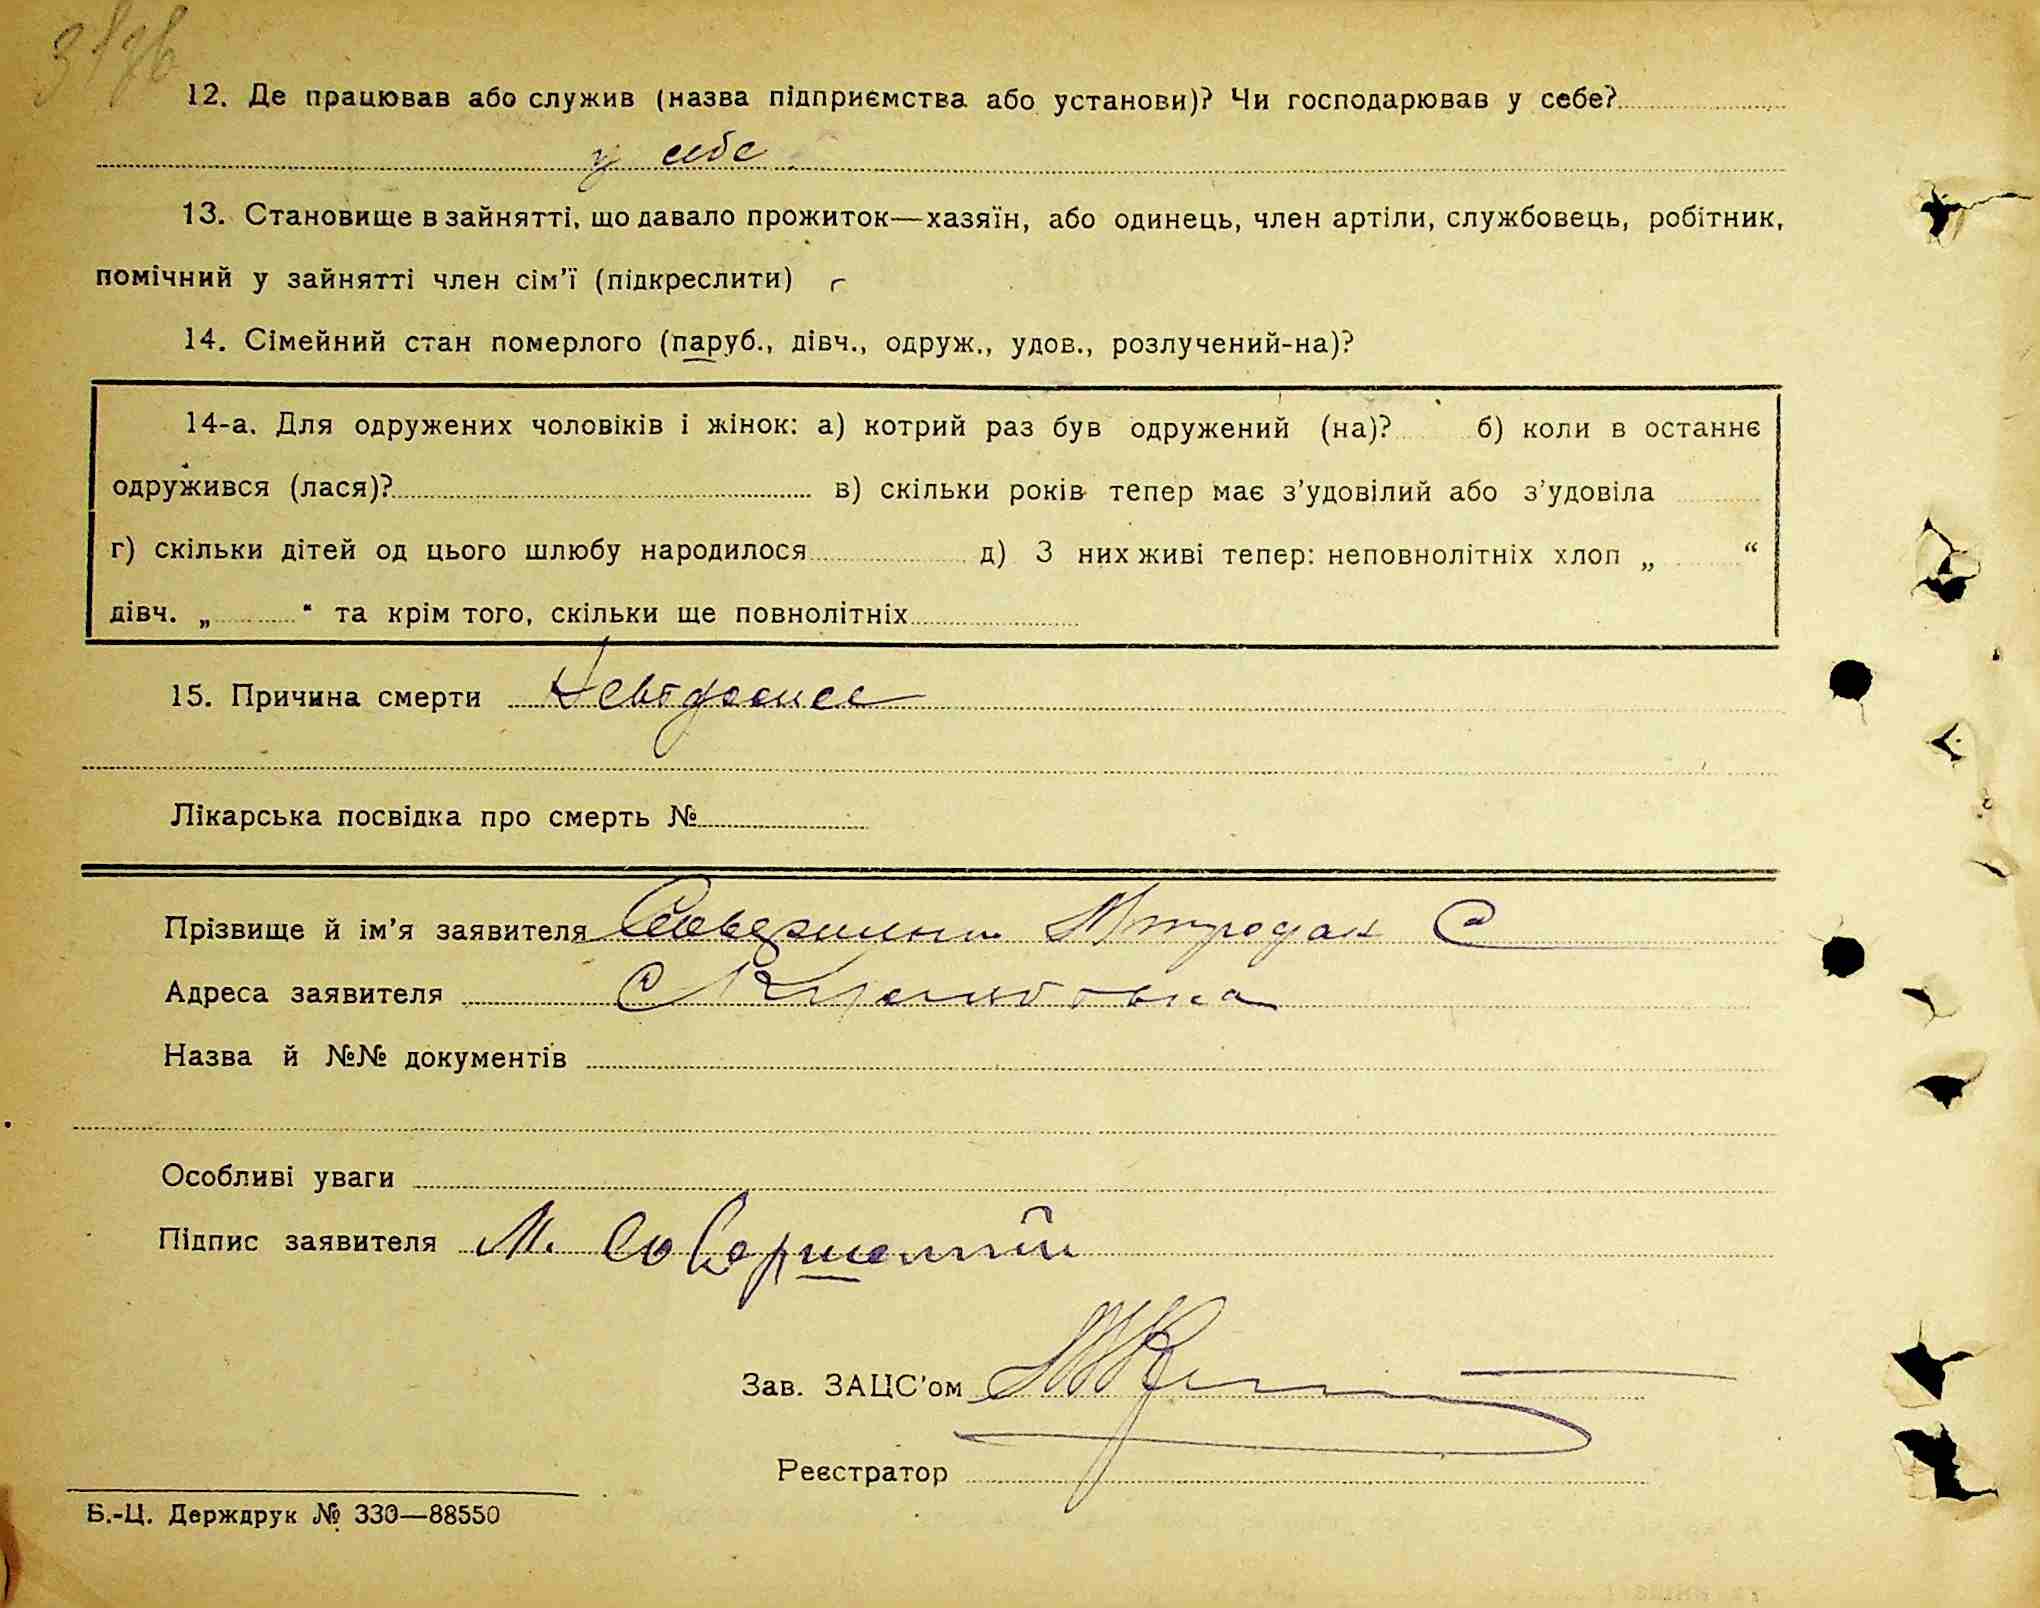 3176
12. Де працював або служив (назва підприємства або установи)? Чи господарював у себе?
у себе
13. Становище в зайнятті, що давало прожиток—хазяїн, або одинець, член артіли, службовець, робітник,
помічний у зайнятті член сім'ї (підкреслити)
14. Сімейний стан померлого (паруб., дівч., одруж., удов., розлучений-на)?
14-а. Для одружених чоловіків і жінок: а) котрий раз був одружений (на)? б) коли в останнє
одружився (лася)? в) скільки років тепер має з'удовілий або з'удовіла
г) скільки дітей од цього шлюбу народилося д) З них живі тепер: неповнолітніх хлоп „ “
дівч. „ “ та крім того, скільки ще повнолітніх
15. Причина смерти Невідома
Лікарська посвідка про смерть №
Прізвище й ім'я заявителя Митрофан С
Адреса заявителя С
Назва й №№ документів
Особливі уваги
Підпис заявителя М.
Зав. ЗАЦС'ом
Реєстратор
Б.-Ц. Держдрук № 330—88550